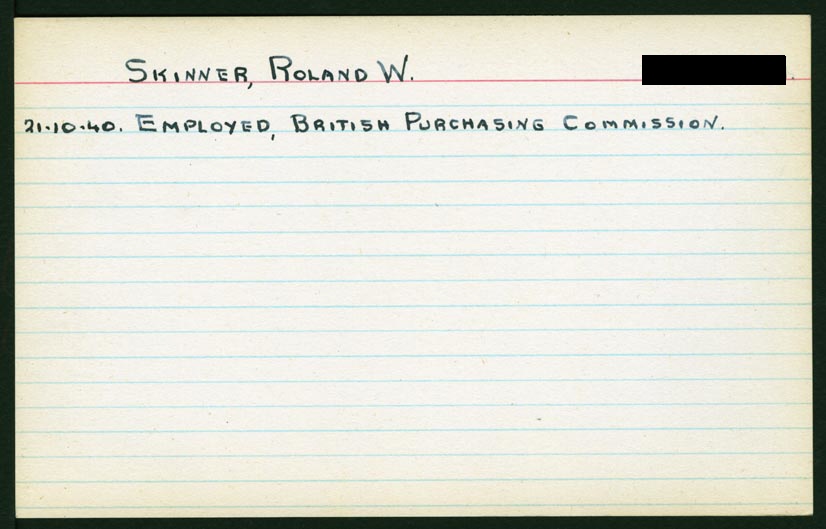 SKINNER, ROLAND W.
21.10.40. EMPLOYED, BRITISH PURCHASING COMMISSION.